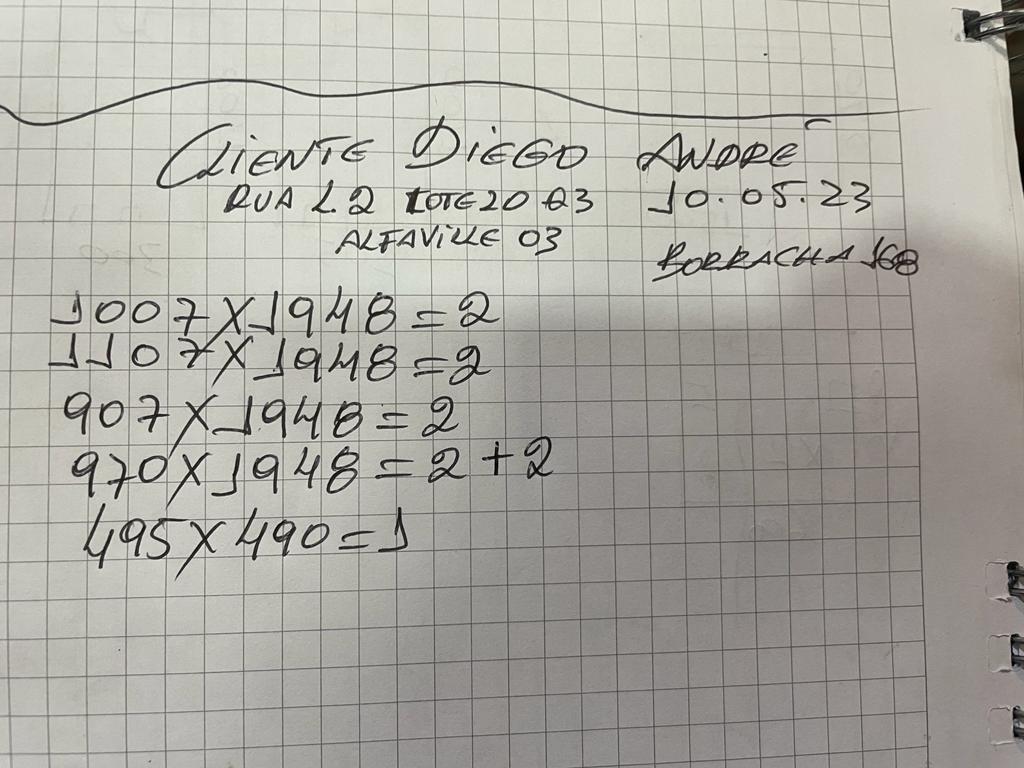 CLIENTE DIEGO ANDRÉ
RUA L.2 LOTE 20 Q3 10.05.23
ALFAVILLE 03
BORRACHA 168
1007X1948=2
1107X1948=2
907X1948=2
970X1948=2+2
495X490=1